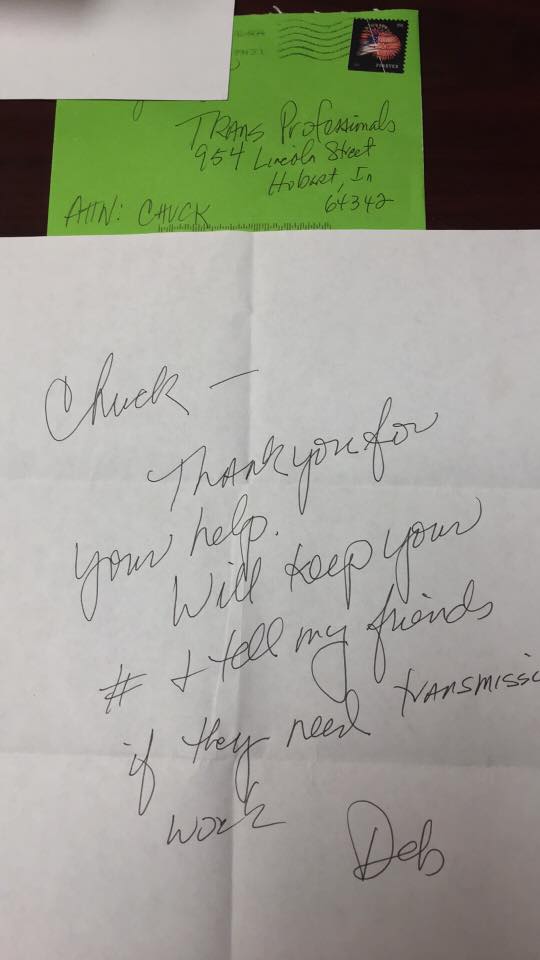 FOREVER
TRANS Professionals
954 Lincoln Street
Hobart, In
64342
ATTN: CHUCK
Chuck —
Thank you for
your help.
Will keep your
# & tell my friends
if they need transmissi
work
Deb